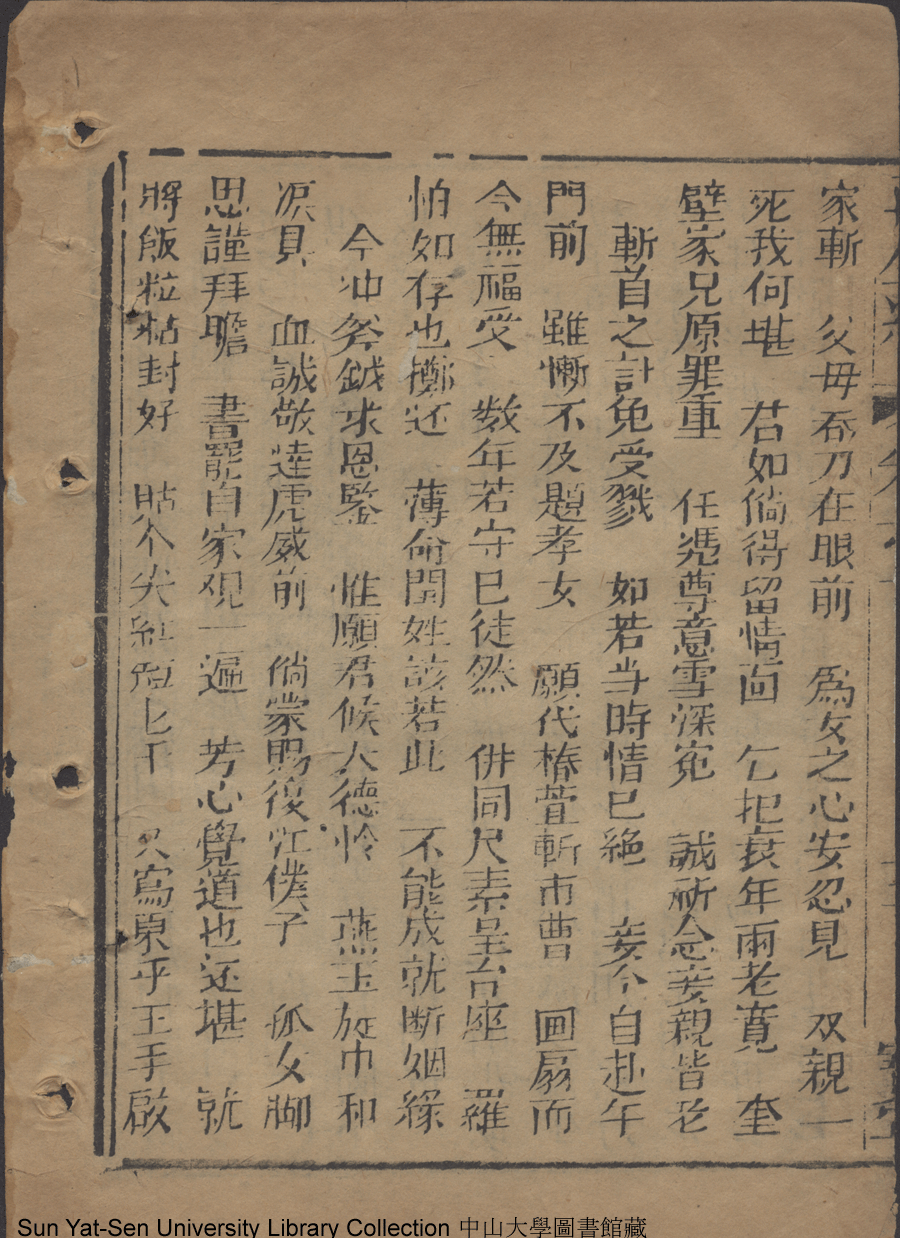 家斬 父毋吞刀在眼前 爲女之心安忍見 双親一
死我何堪 君如倘得留情面 乞把衰年兩老寛 奎
壁家兄原罪重 任凴尊意雪深寃 誠祈念妾親皆老
斬首之計免受戮 如若当時情已絶 妾个自赴午
門前 雖慚不及題孝女 願代椿萱斬市曹 画扇而
今無福受 数年若守巳徒然 併同尺素呈台座 羅
怕如存也擲还 薄命閏姓該若此 不能成就断姻緣
今冲斧鉞求恩鍳 惟願君候大德怜 燕玉㫌巾和
淚具 血誠敬達虎威前 倘蒙賜復江僕子 孤女脚
思謹拜瞻 書罷自家观一遍 芳心覺道也还堪 就
將飯粒粘封好 尖 寫 乎玉手啟
Sun Yat-Sen University Library Collection 中山大學圖書館藏